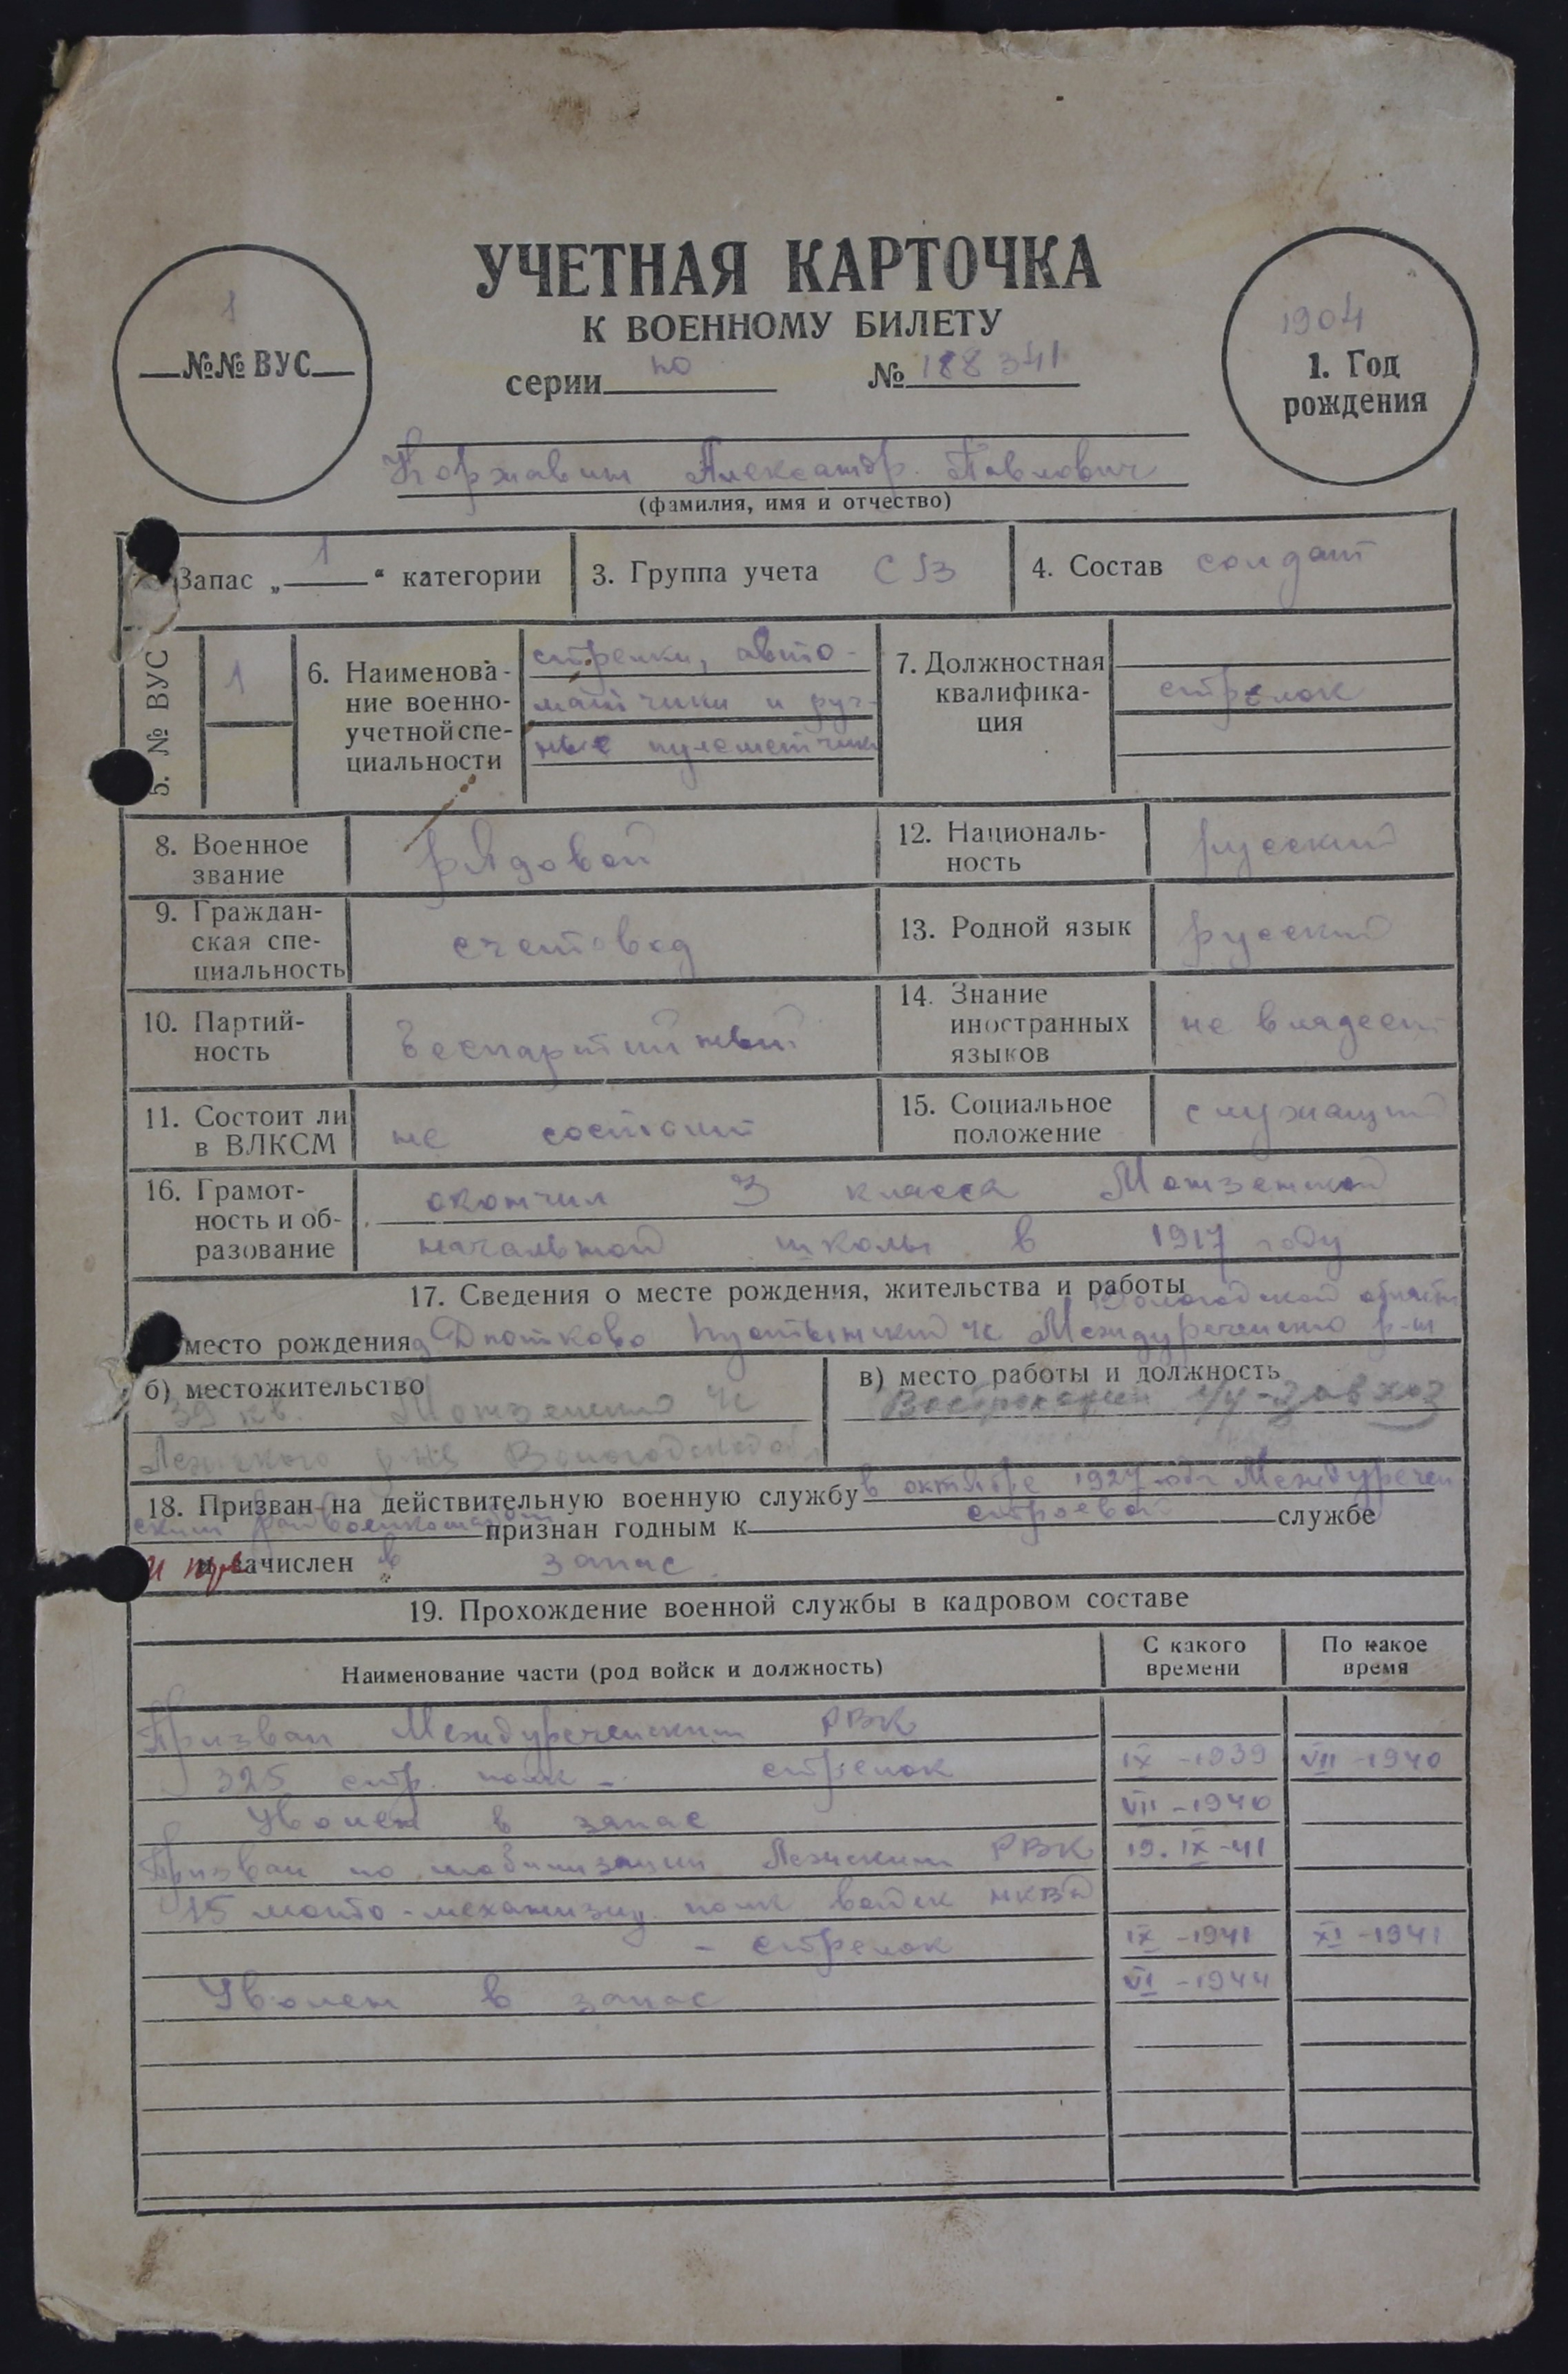 УЧЕТНАЯ КАРТОЧКА
К ВОЕННОМУ БИЛЕТУ
серии по № 188341
1
№№ ВУС
1904
1. Год
рождения
Коржавин Александр Павлович
(фамилия, имя и отчество)
Запас „ 1 “ категории
3. Группа учета СВ
4. Состав солдат
5. № ВУС
1
6. Наименова-
ние военно-
учетной спе-
циальности
стрелки, авто-
матчики и руч-
ные пулеметчики
7. Должностная
квалифика-
ция
стрелок
8. Военное
звание
рядовой
12. Националь-
ность
русский
9. Граждан-
ская спе-
циальность
счетовод
13. Родной язык
русский
10. Партий-
ность
беспартийный
14. Знание
иностранных
языков
не владеет
11. Состоит ли
в ВЛКСМ
не состоит
15. Социальное
положение
служащий
16. Грамот-
ность и об-
разование
окончил 3 класса Монзенской
начальной школы в 1917 году
17. Сведения о месте рождения, жительства и работы
Вологодской области
место рождения д. Пустынский с Междуреченского р-н
б) местожительство
39 кв. Монзенского с
Лежского Вологодской
в) место работы и должность
завхоз
18. Призван на действительную военную службу в октябре 1927 года Междуречен
ским райвоенкоматом признан годным к строевой службе
и зачислен в запас
19. Прохождение военной службы в кадровом составе
Наименование части (род войск и должность)
С какого
времени
По какое
время
Призван Междуреченским РВК
325 стр. полк - стрелок IX-1939 VII-1940
Уволен в запас VII-1940
Призван по мобилизации Лежским РВК 19.IX-41
15 мото-механизир. полк войск НКВД
- стрелок IX-1941 XI-1941
Уволен в запас VI-1944